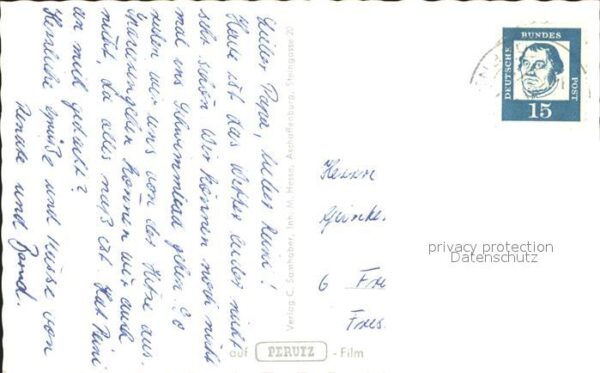 Lieber Papa, lieber Reini!
Heute ist das Wetter leider nicht
sehr schön. Wir können noch nicht
mal ins Schwimmbad gehen. So
ruhen wir uns von der Hitze aus.
Spazierengehen können wir auch
nicht, da alles naß ist. Hat Reini
an mich gedacht?
Herzliche Grüße und Küsse von
Renate und Bernd.
Verlag C. Samhaber, Inh. M. Hesse, Aschaffenburg, Steingasse 20
auf PERUTZ - Film
DEUTSCHE BUNDES POST
15
Herrn
6
privacy protection
Datenschutz